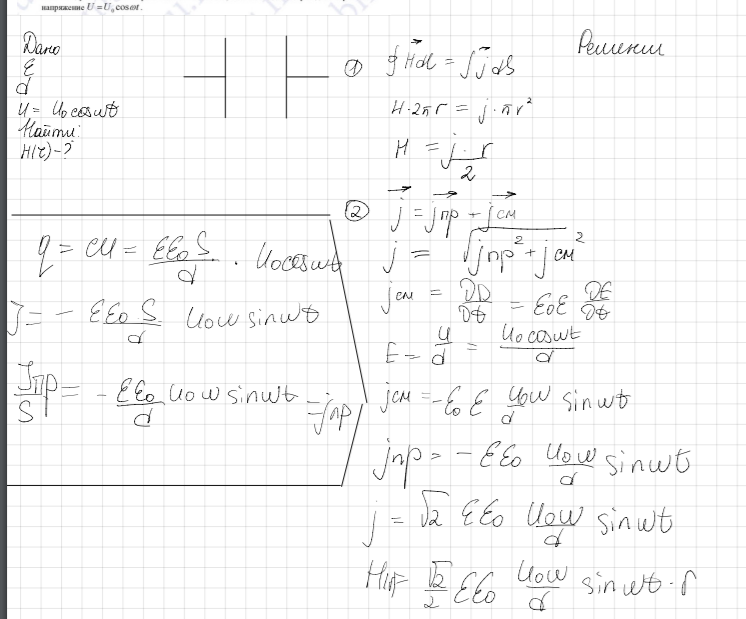 напряжение U = U₀cosωt.
Дано
ε
d
U = U₀cosωt
Найти:
H(r) - ?
Решение
① ∮H⃗dl = ∫j⃗ds
H·2πr = j·πr²
H = j·r/2
② j⃗ = j⃗пр + j⃗см
j = √(jпр² + jсм²)
jсм = ∂D/∂t = ε₀ε ∂E/∂t
E = U/d = U₀cosωt/d
jсм = -ε₀ε U₀ω/d sinωt
jпр = -εε₀ U₀ω/d sinωt
j = √2 εε₀ U₀ω/d sinωt
H(r) = √2/2 εε₀ U₀ω/d sinωt·r
q = CU = εε₀S/d · U₀cosωt
J = - εε₀S/d U₀ω sinωt
Jпр/S = - εε₀/d U₀ω sinωt = jпр